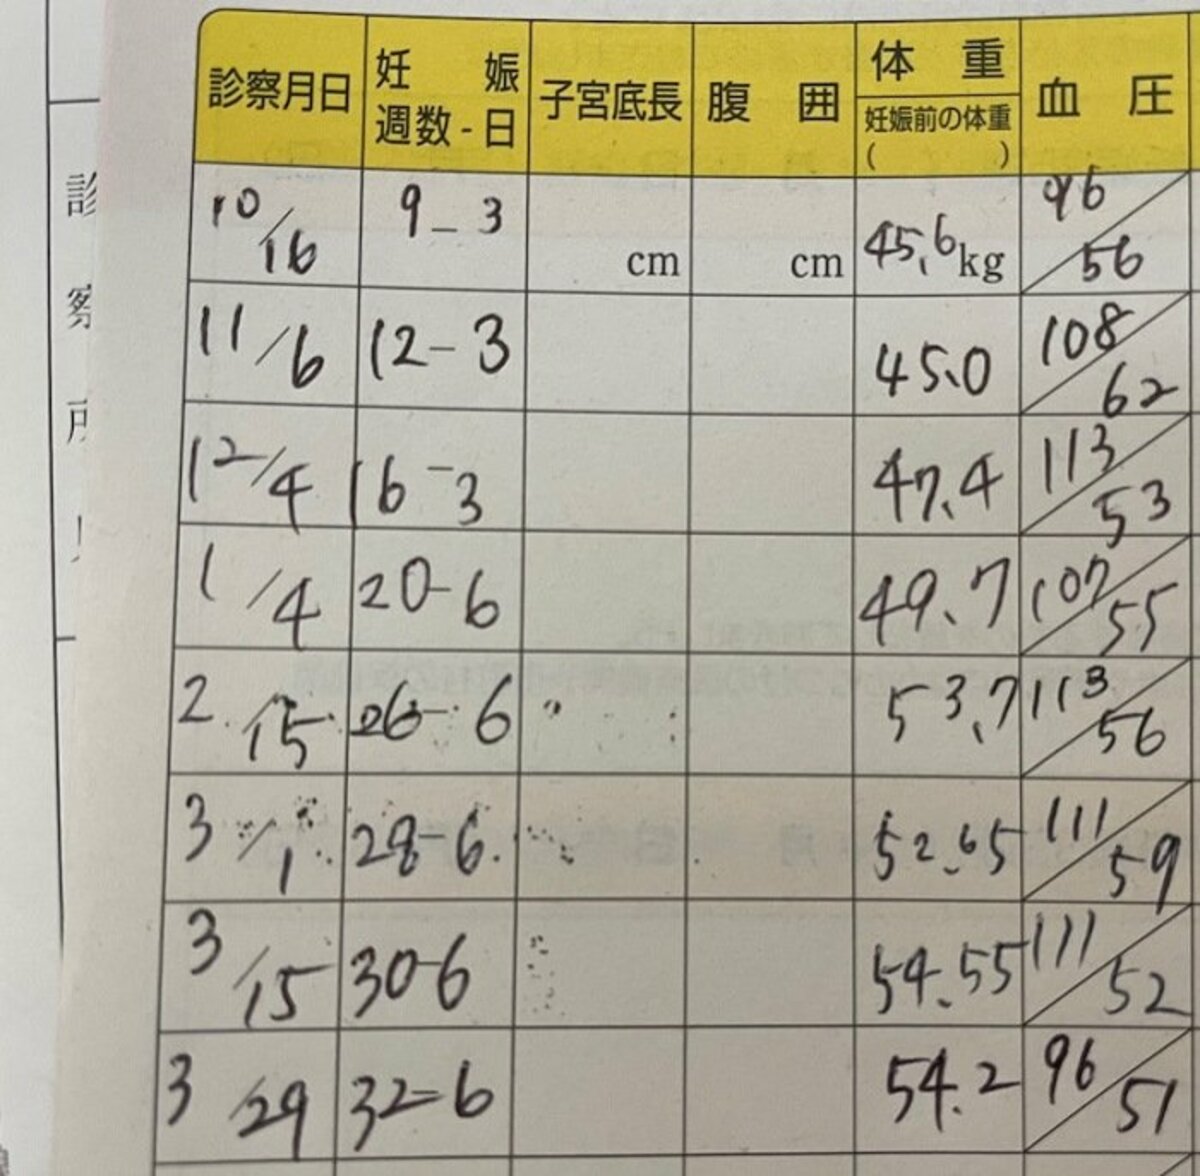 診察月日 妊娠週数-日 子宮底長 腹囲 体重 妊娠前の体重 ( ) 血圧
10/16 9-3 cm cm 45.6kg 96/56
11/6 12-3 45.0 108/62
12/4 16-3 47.4 113/53
1/4 20-6 49.7 107/55
2/15 26-6 53.7 113/56
3/1 28-6 52.65 111/59
3/15 30-6 54.55 111/52
3/29 32-6 54.2 96/51
診
察